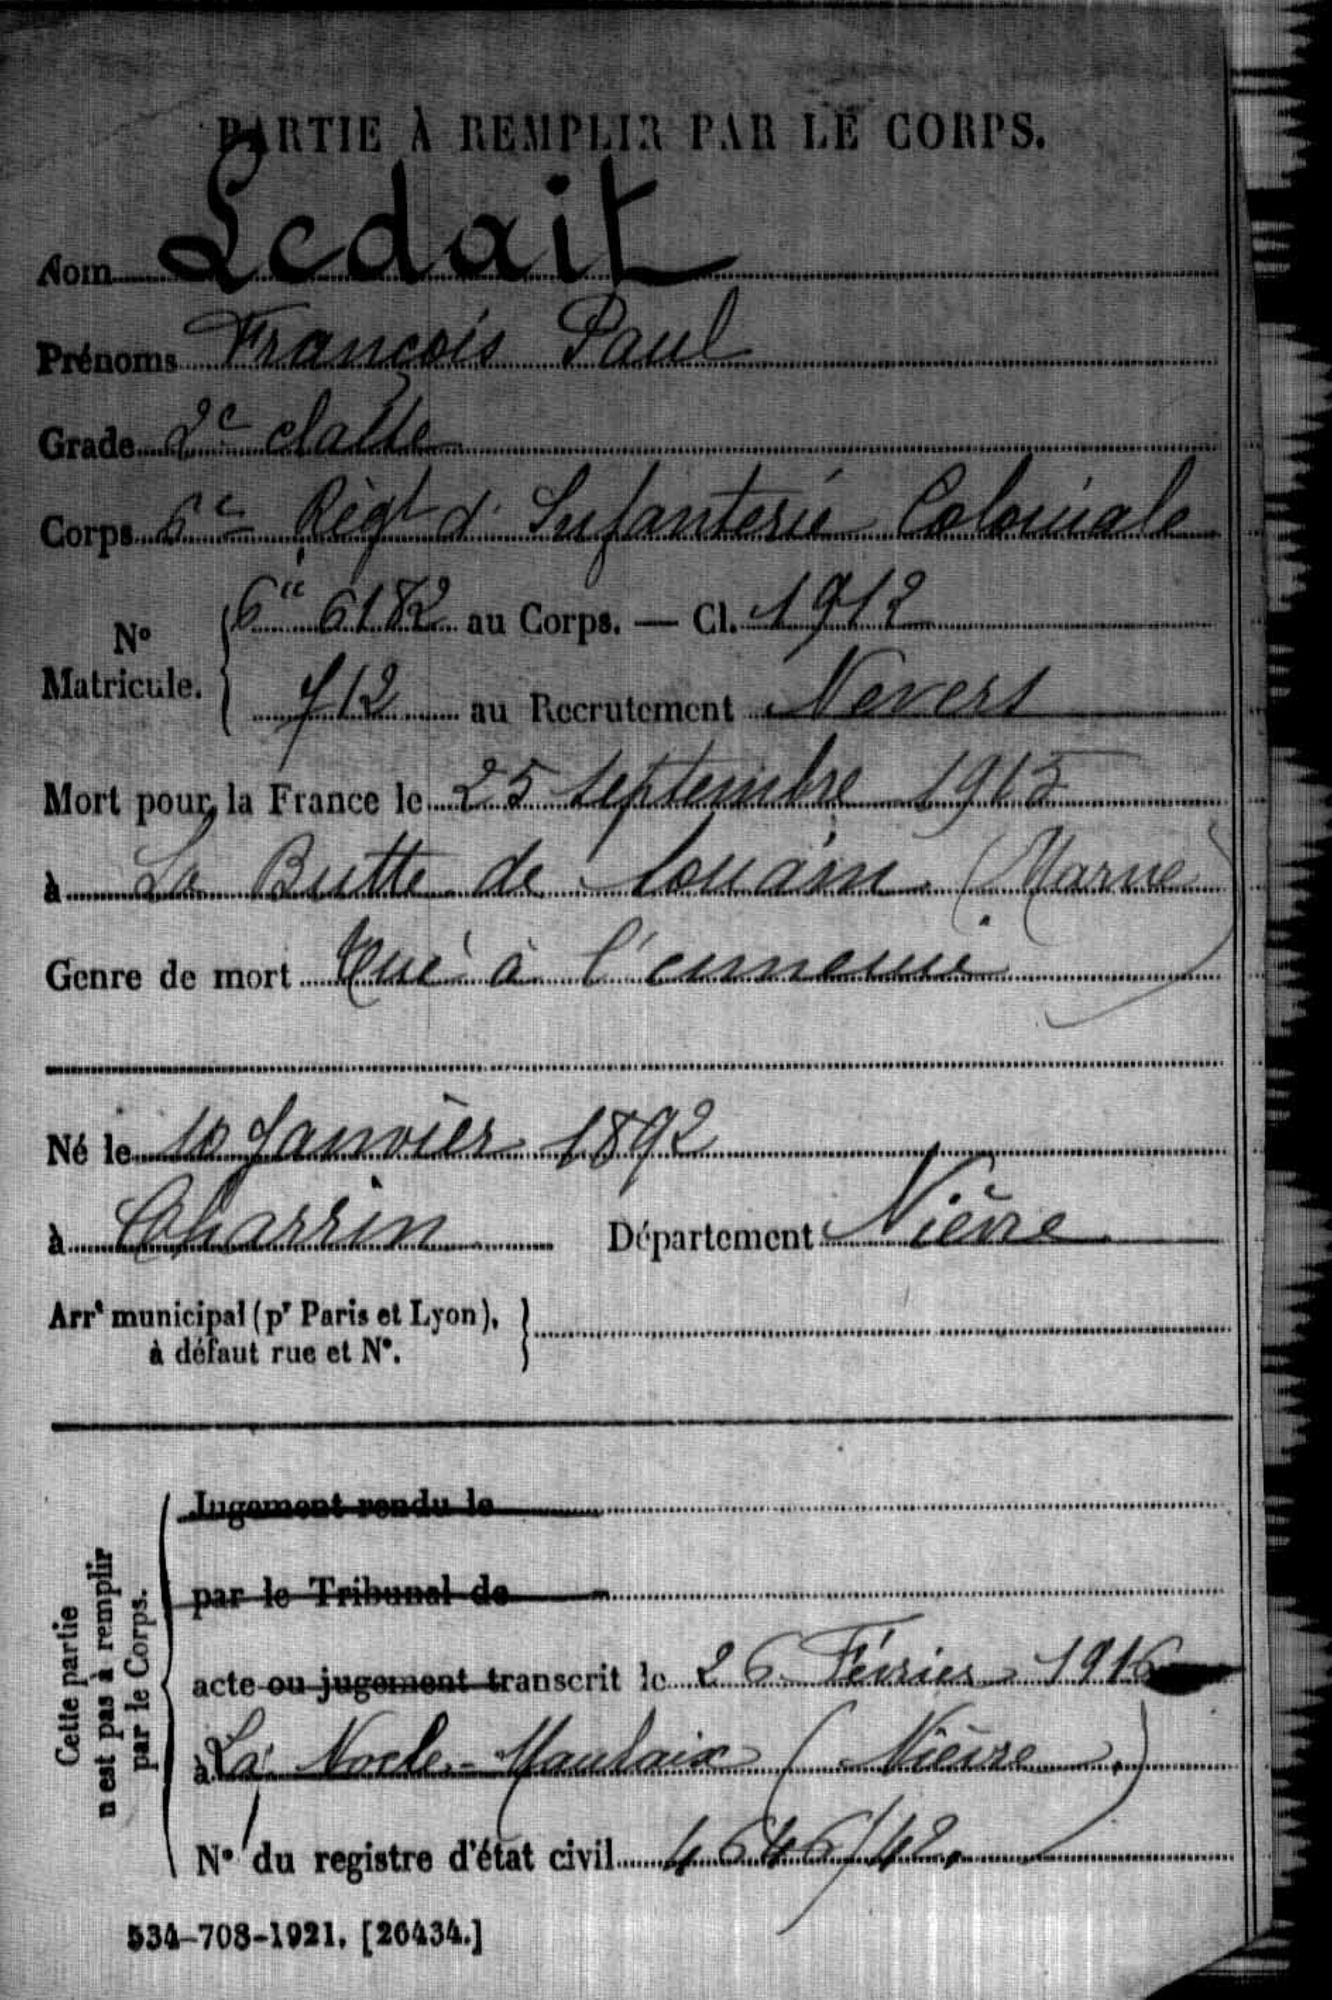 PARTIE À REMPLIR PAR LE CORPS.
Nom Ledait
Prénoms François Paul
Grade 2e classe
Corps 6e Régt d'Infanterie Coloniale
N° Matricule. { 6e 6182 au Corps. — Cl. 1912
712 au Recrutement Nevers
Mort pour la France le 25 septembre 1915
à La Butte de Souain (Marne)
Genre de mort Tué à l'ennemi
Né le 10 Janvier 1892
à Charrin Département Nièvre
Arrt municipal (pr Paris et Lyon),
à défaut rue et N°.
Cette partie
n'est pas à remplir
par le Corps.
Jugement rendu le
par le Tribunal de
acte ou jugement transcrit le 26 Février 1916
à La Nocle-Maulaix (Nièvre)
N° du registre d'état civil 4646/42.
534-708-1921. [26434.]